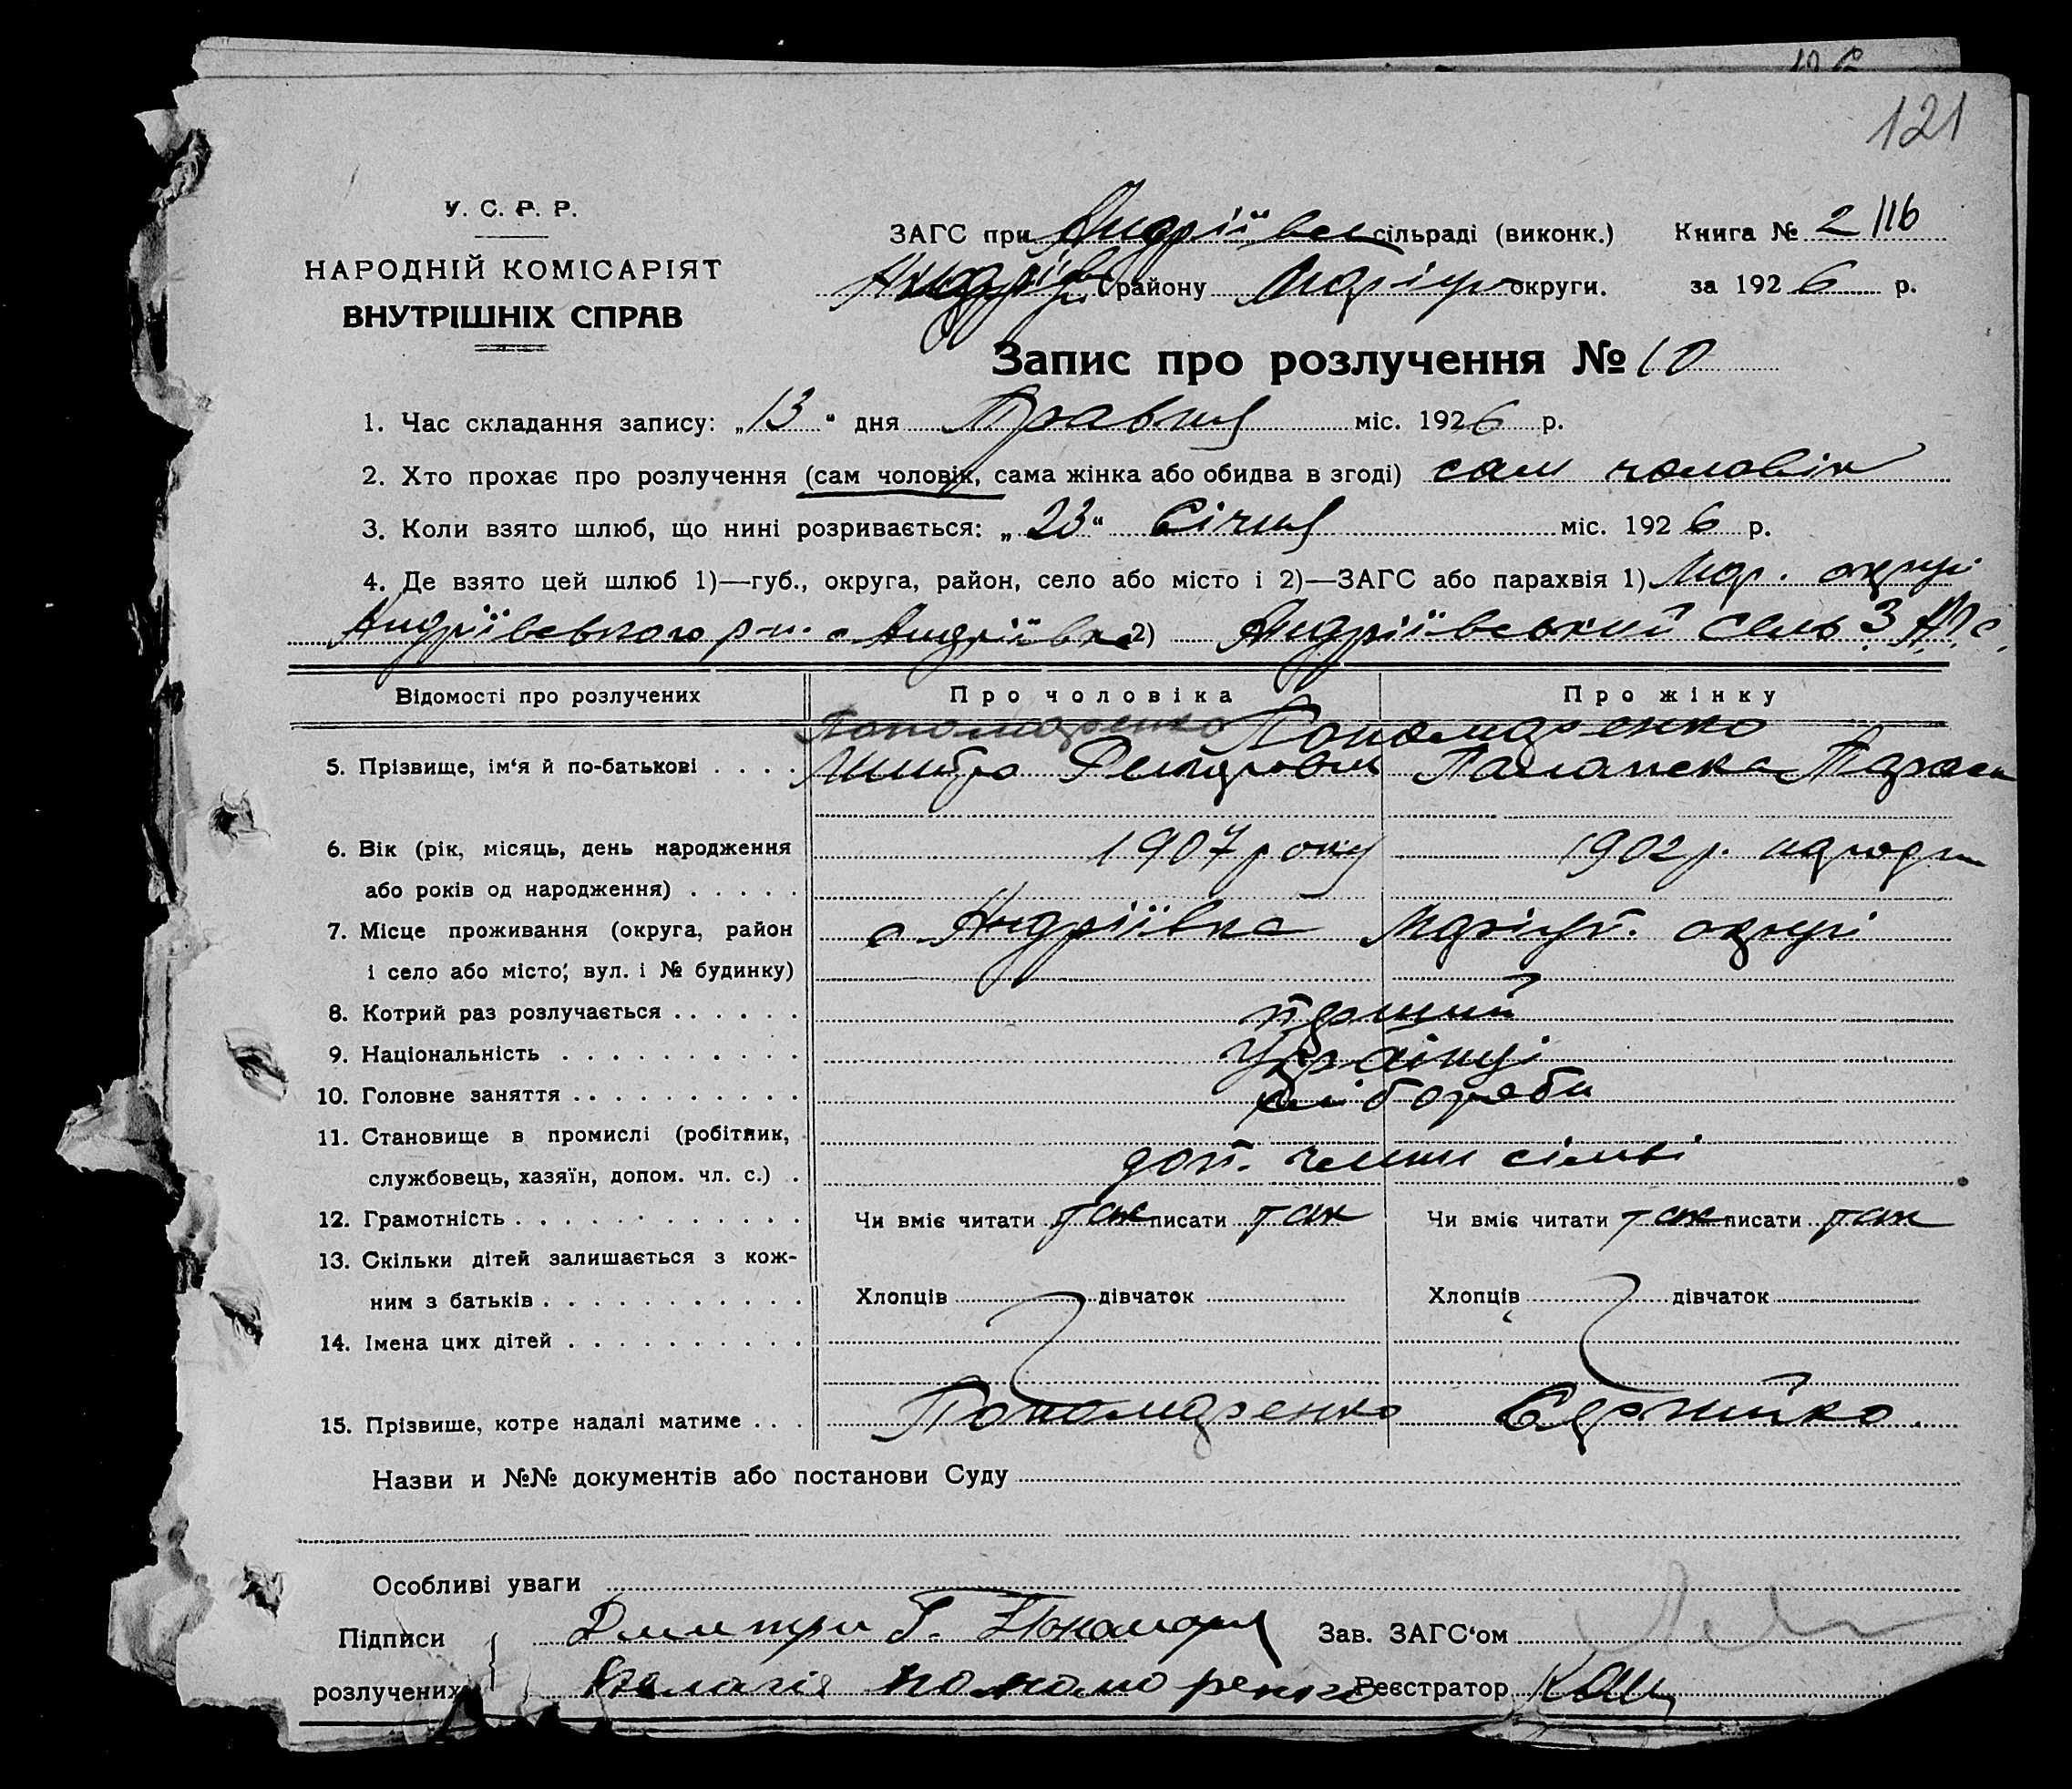 121
У. С. Р. Р.
НАРОДНІЙ КОМІСАРІЯТ
ВНУТРІШНІХ СПРАВ
ЗАГС при Андріївск сільраді (виконк.) Книга № 2/116
Андріїв району Маріуп округи. за 1926 р.
Запис про розлучення № 10
1. Час складання запису: „13“ дня Травня міс. 1926 р.
2. Хто прохає про розлучення (сам чоловік, сама жінка або обидва в згоді) сам чоловік
3. Коли взято шлюб, що нині розривається: „23“ Січня міс. 1926 р.
4. Де взято цей шлюб 1)—губ., округа, район, село або місто і 2)—ЗАГС або парахвія 1) Мар. округі
Андріївського р-н. с Андріївка 2) Андріївський сель З.А.Г.С.
Відомості про розлучених Про чоловіка Про жінку
Пономаренко Пономаренко
5. Прізвище, ім‘я й по-батькові . . . .
6. Вік (рік, місяць, день народження 1907 року 1902 р. народ
або років од народження) . . . . .
7. Місце проживання (округа, район с. Андріївка Маріуп. округі
і село або місто; вул. і № будинку)
8. Котрий раз розлучається . . . . . . перший
9. Національність . . . . . . . . . . Українці
10. Головне заняття . . . . . . . . . . хліборобы
11. Становище в промислі (робітник,
службовець, хазяїн, допом. чл. с.) . доп. члени сімьі
12. Грамотність . . . . . . . . . . . . Чи вміє читати так писати так Чи вміє читати так писати так
13. Скільки дітей залишається з кож-
ним з батьків . . . . . . . . . . . Хлопців дівчаток Хлопців дівчаток
14. Імена цих дітей . . . . . . . . . .
15. Прізвише, котре надалі матиме . . . Пономаренко
Назви и №№ документів або постанови Суду
Особливі уваги
Підписи Дмитри Зав. ЗАГС‘ом
розлучених Пелагія пономоренко Реєстратор